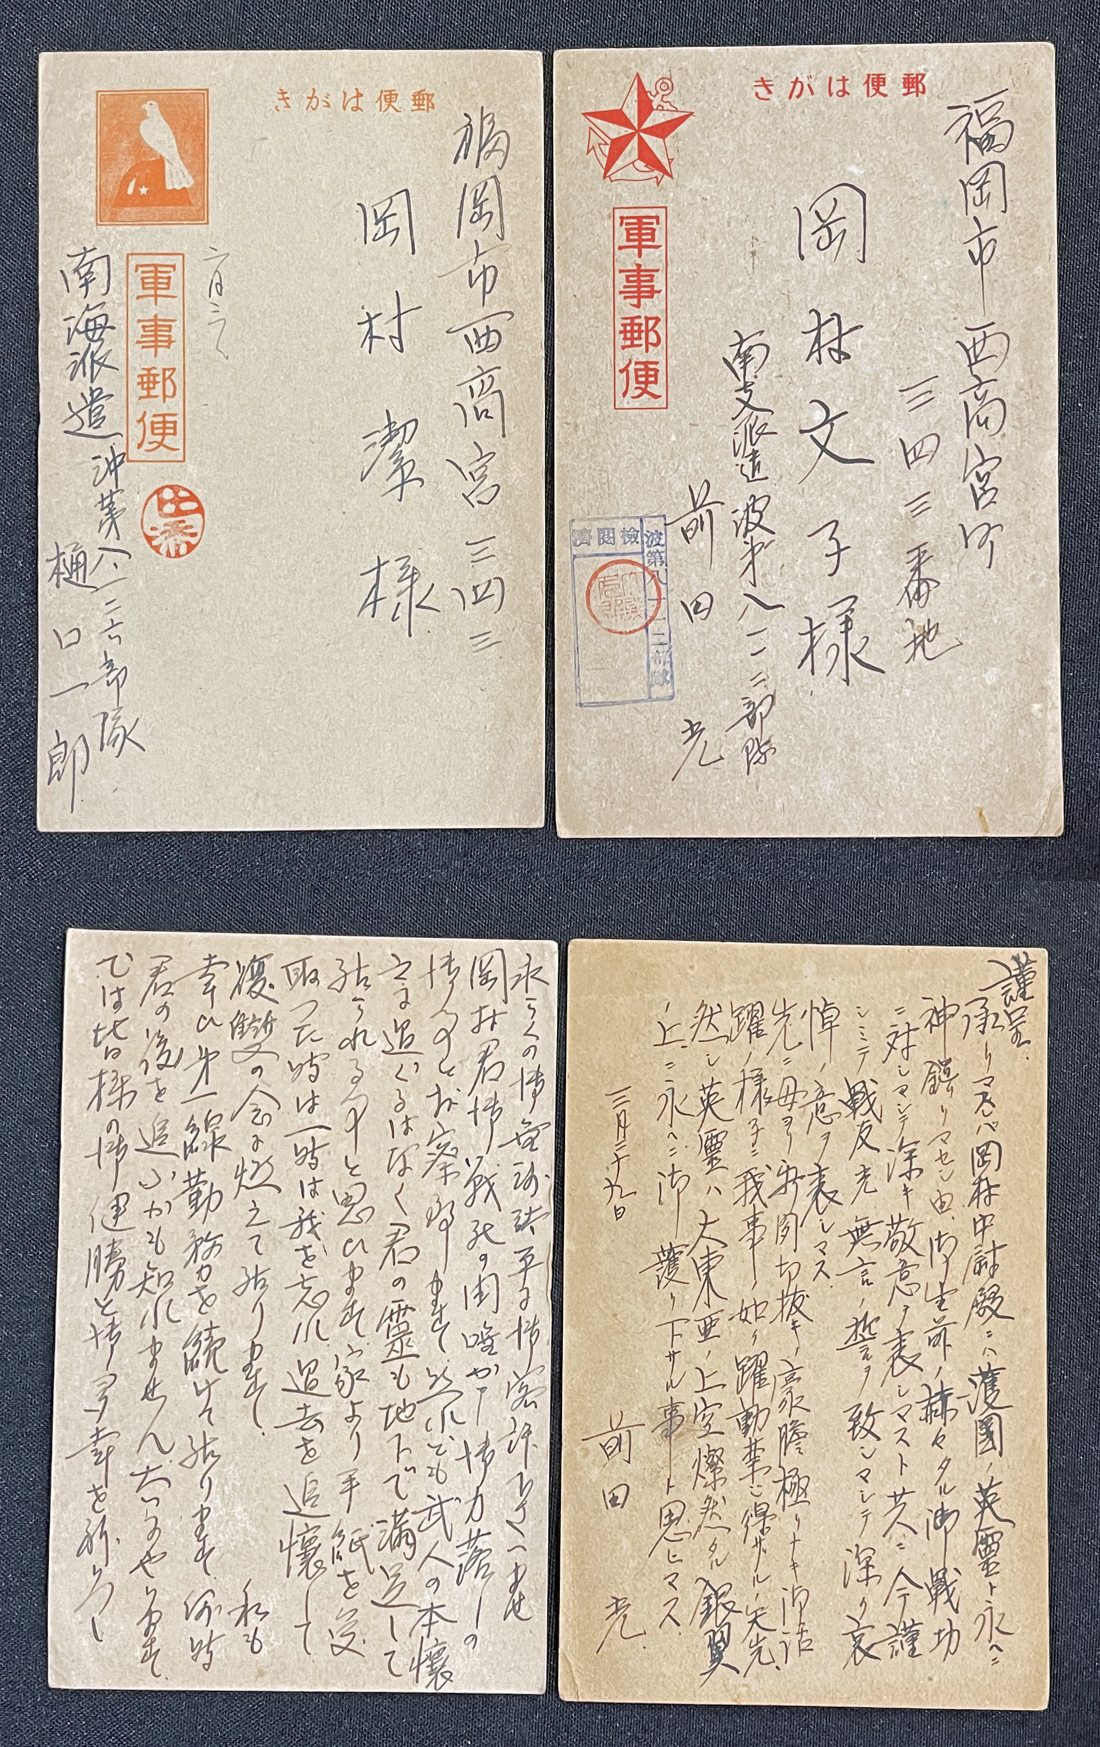 郵便はがき
福岡市西商宮三四三
岡村潔様
六月三〇
軍事郵便
南海派遣沖第八一二六部隊
樋口一郎
郵便はがき
福岡市西商宮町
三四三番地
岡村文子様
軍事郵便
南支派遣波第八一一二部隊
前田光
検閲済
永らくの御無沙汰平に御容許下さいませ
岡村君御戦死の由唯か御力落しの
御事とお察し致します然れども武人の本懐
之に過ぐるはなく君の霊も地下で満足して
居られる事と思ひます家より手紙を受
取った時は一時は我を忘れ過去を追懐して
復讐の念に燃えて居ります 私も
幸ひ第一線勤務を続けて居ります何時
君の後を追ふかも知れません大いにやります
では皆様の御健勝と御多幸を祈りつゝ
謹呈
承リマスレバ岡村中尉殿ニハ護國ノ英霊ト永ヘニ
神鎮リマセシ由御生前ノ赫々タル御戦功
ニ対シマシテ深キ敬意ヲ表シマスト共ニ今謹
シミテ戦友光無言ノ誓ヲ致シマシテ深ク哀
悼ノ意ヲ表シマス
先ニ母ヨリ新聞切抜キノ豪膽極リナキ御話
躍ノ様子ニ我事ノ如ク躍動禁じ得ザル矢先
然シ英霊ハ大東亜ノ上空燦然タル銀翼
ノ上ニ永ヘニ御護リ下サル事ト思ヒマス
三月二十九日
前田光